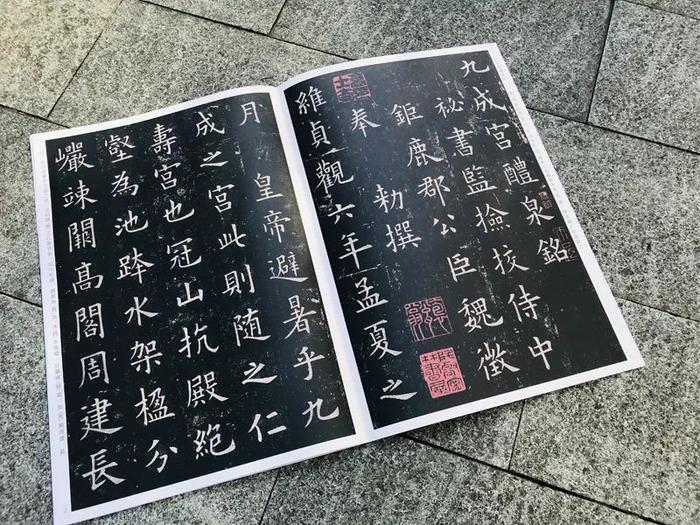 九成宮醴泉銘
祕書監撿挍侍中
鉅鹿郡公臣魏徵
奉 勑撰
維貞觀六年孟夏之
月 皇帝避暑乎九
成之宮此則隨之仁
壽宮也冠山抗殿絕
壑為池跨水架楹分
巖竦闕髙閣周建長